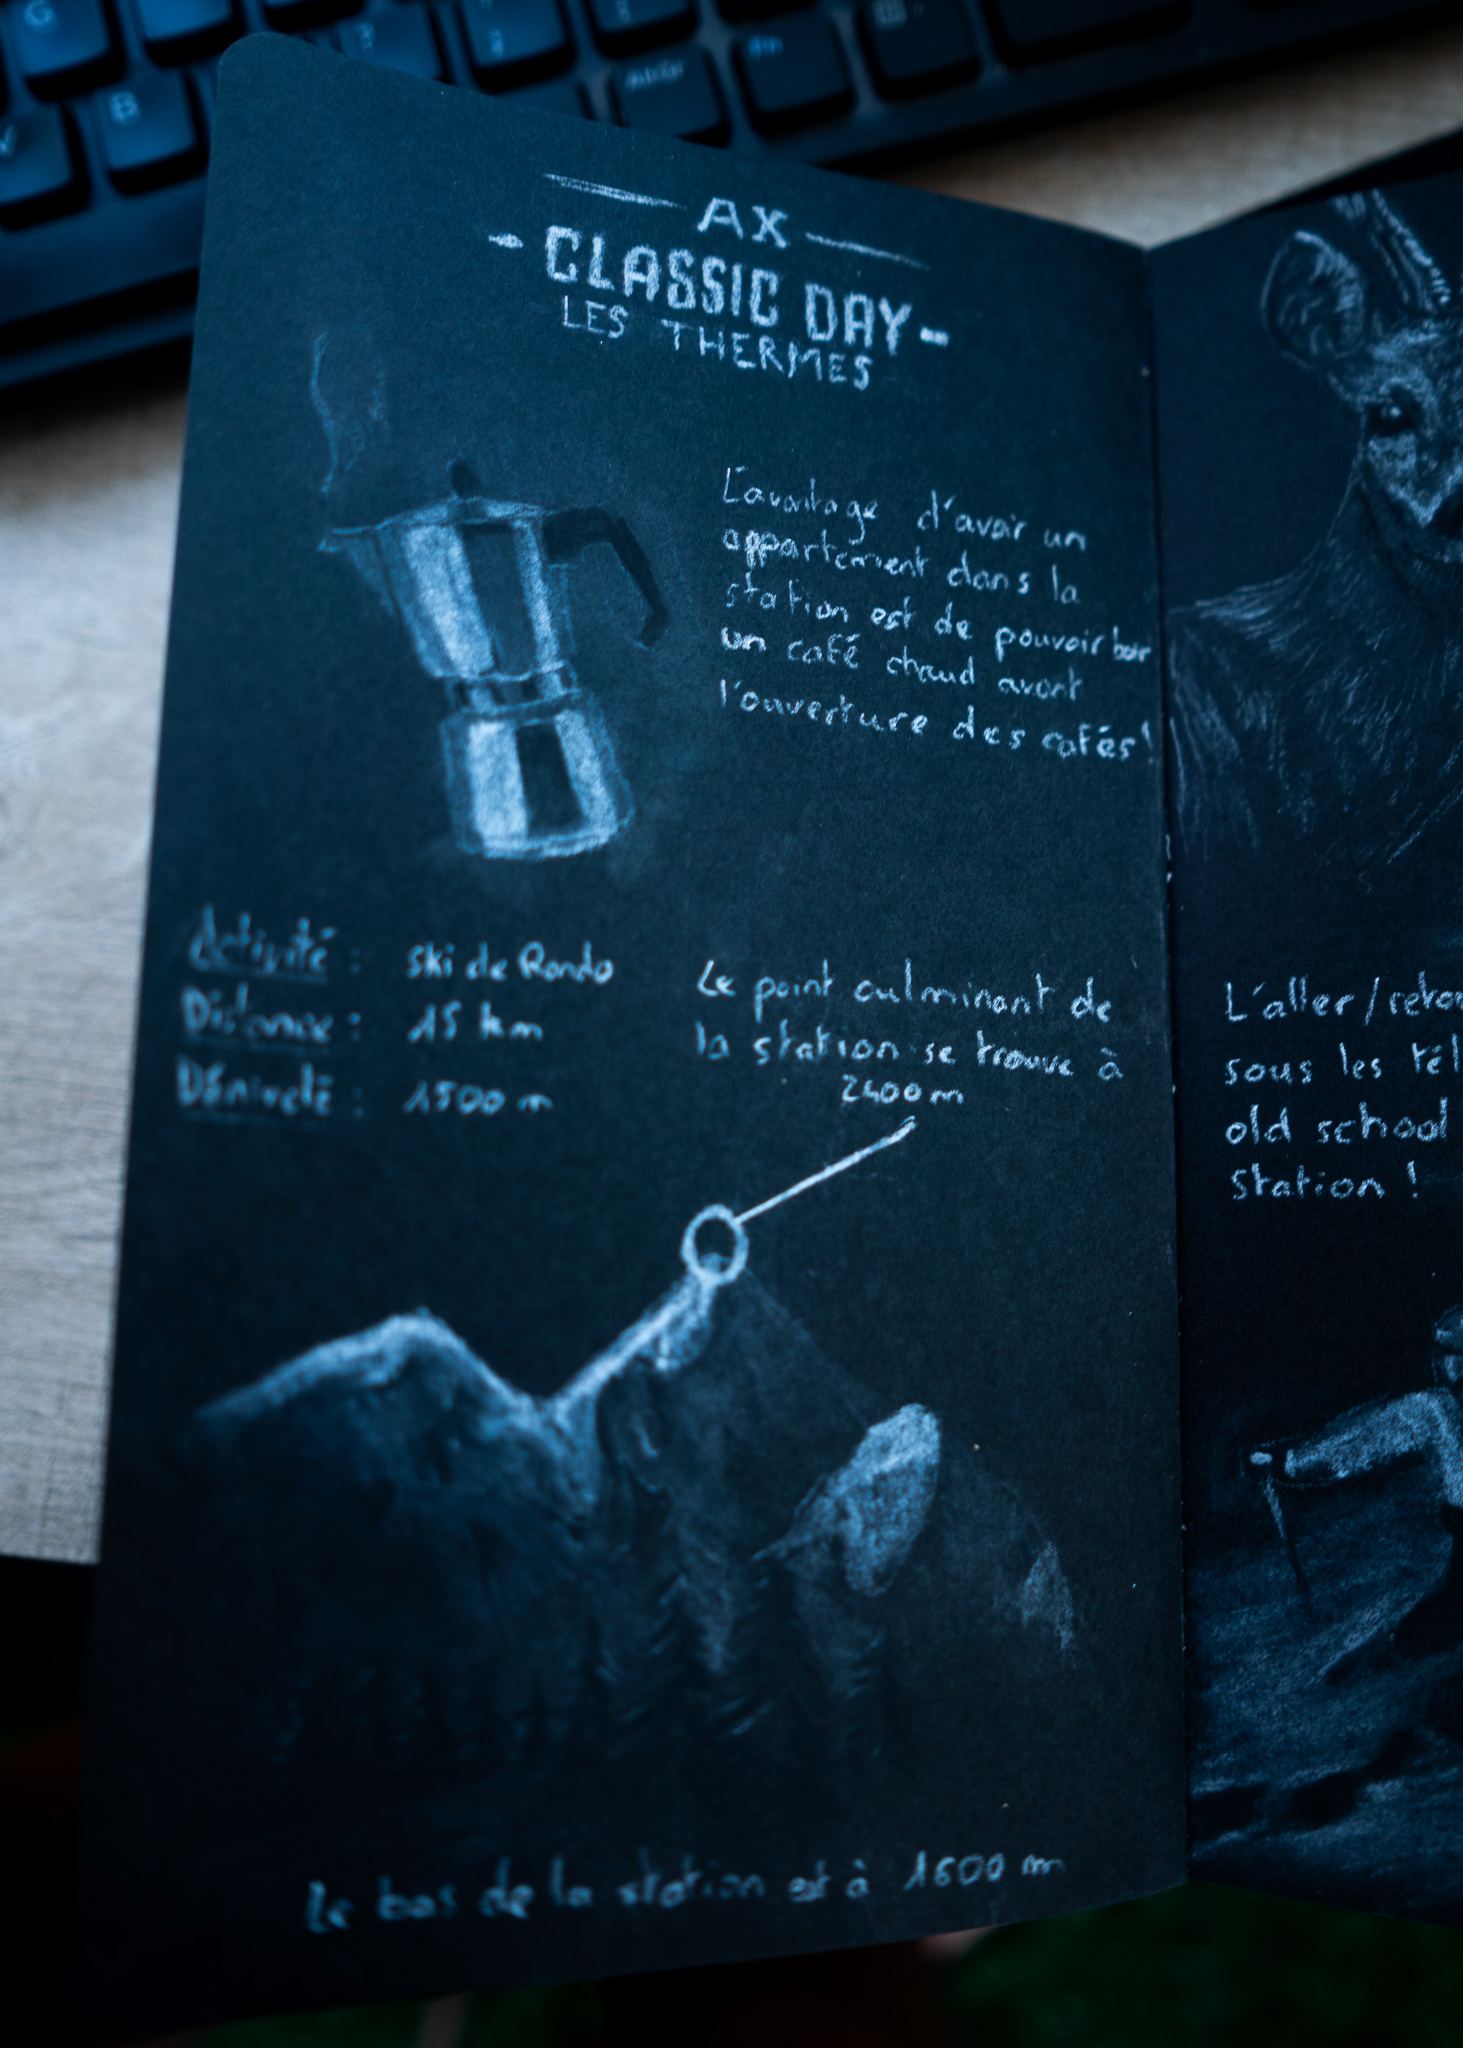 G
B
V
Alt Gr
Fn
AX
- CLASSIC DAY -
LES THERMES
L'avantage d'avoir un
appartement dans la
station est de pouvoir boir
un café chaud avant
l'ouverture des cafés !
Activité : Ski de Rando
Distance : 15 km
Dénivelé : 1500 m
Le point culminant de
la station se trouve à
2400 m
Le bas de la station est à 1600 m
L'aller/retou
sous les tél
old school
station !